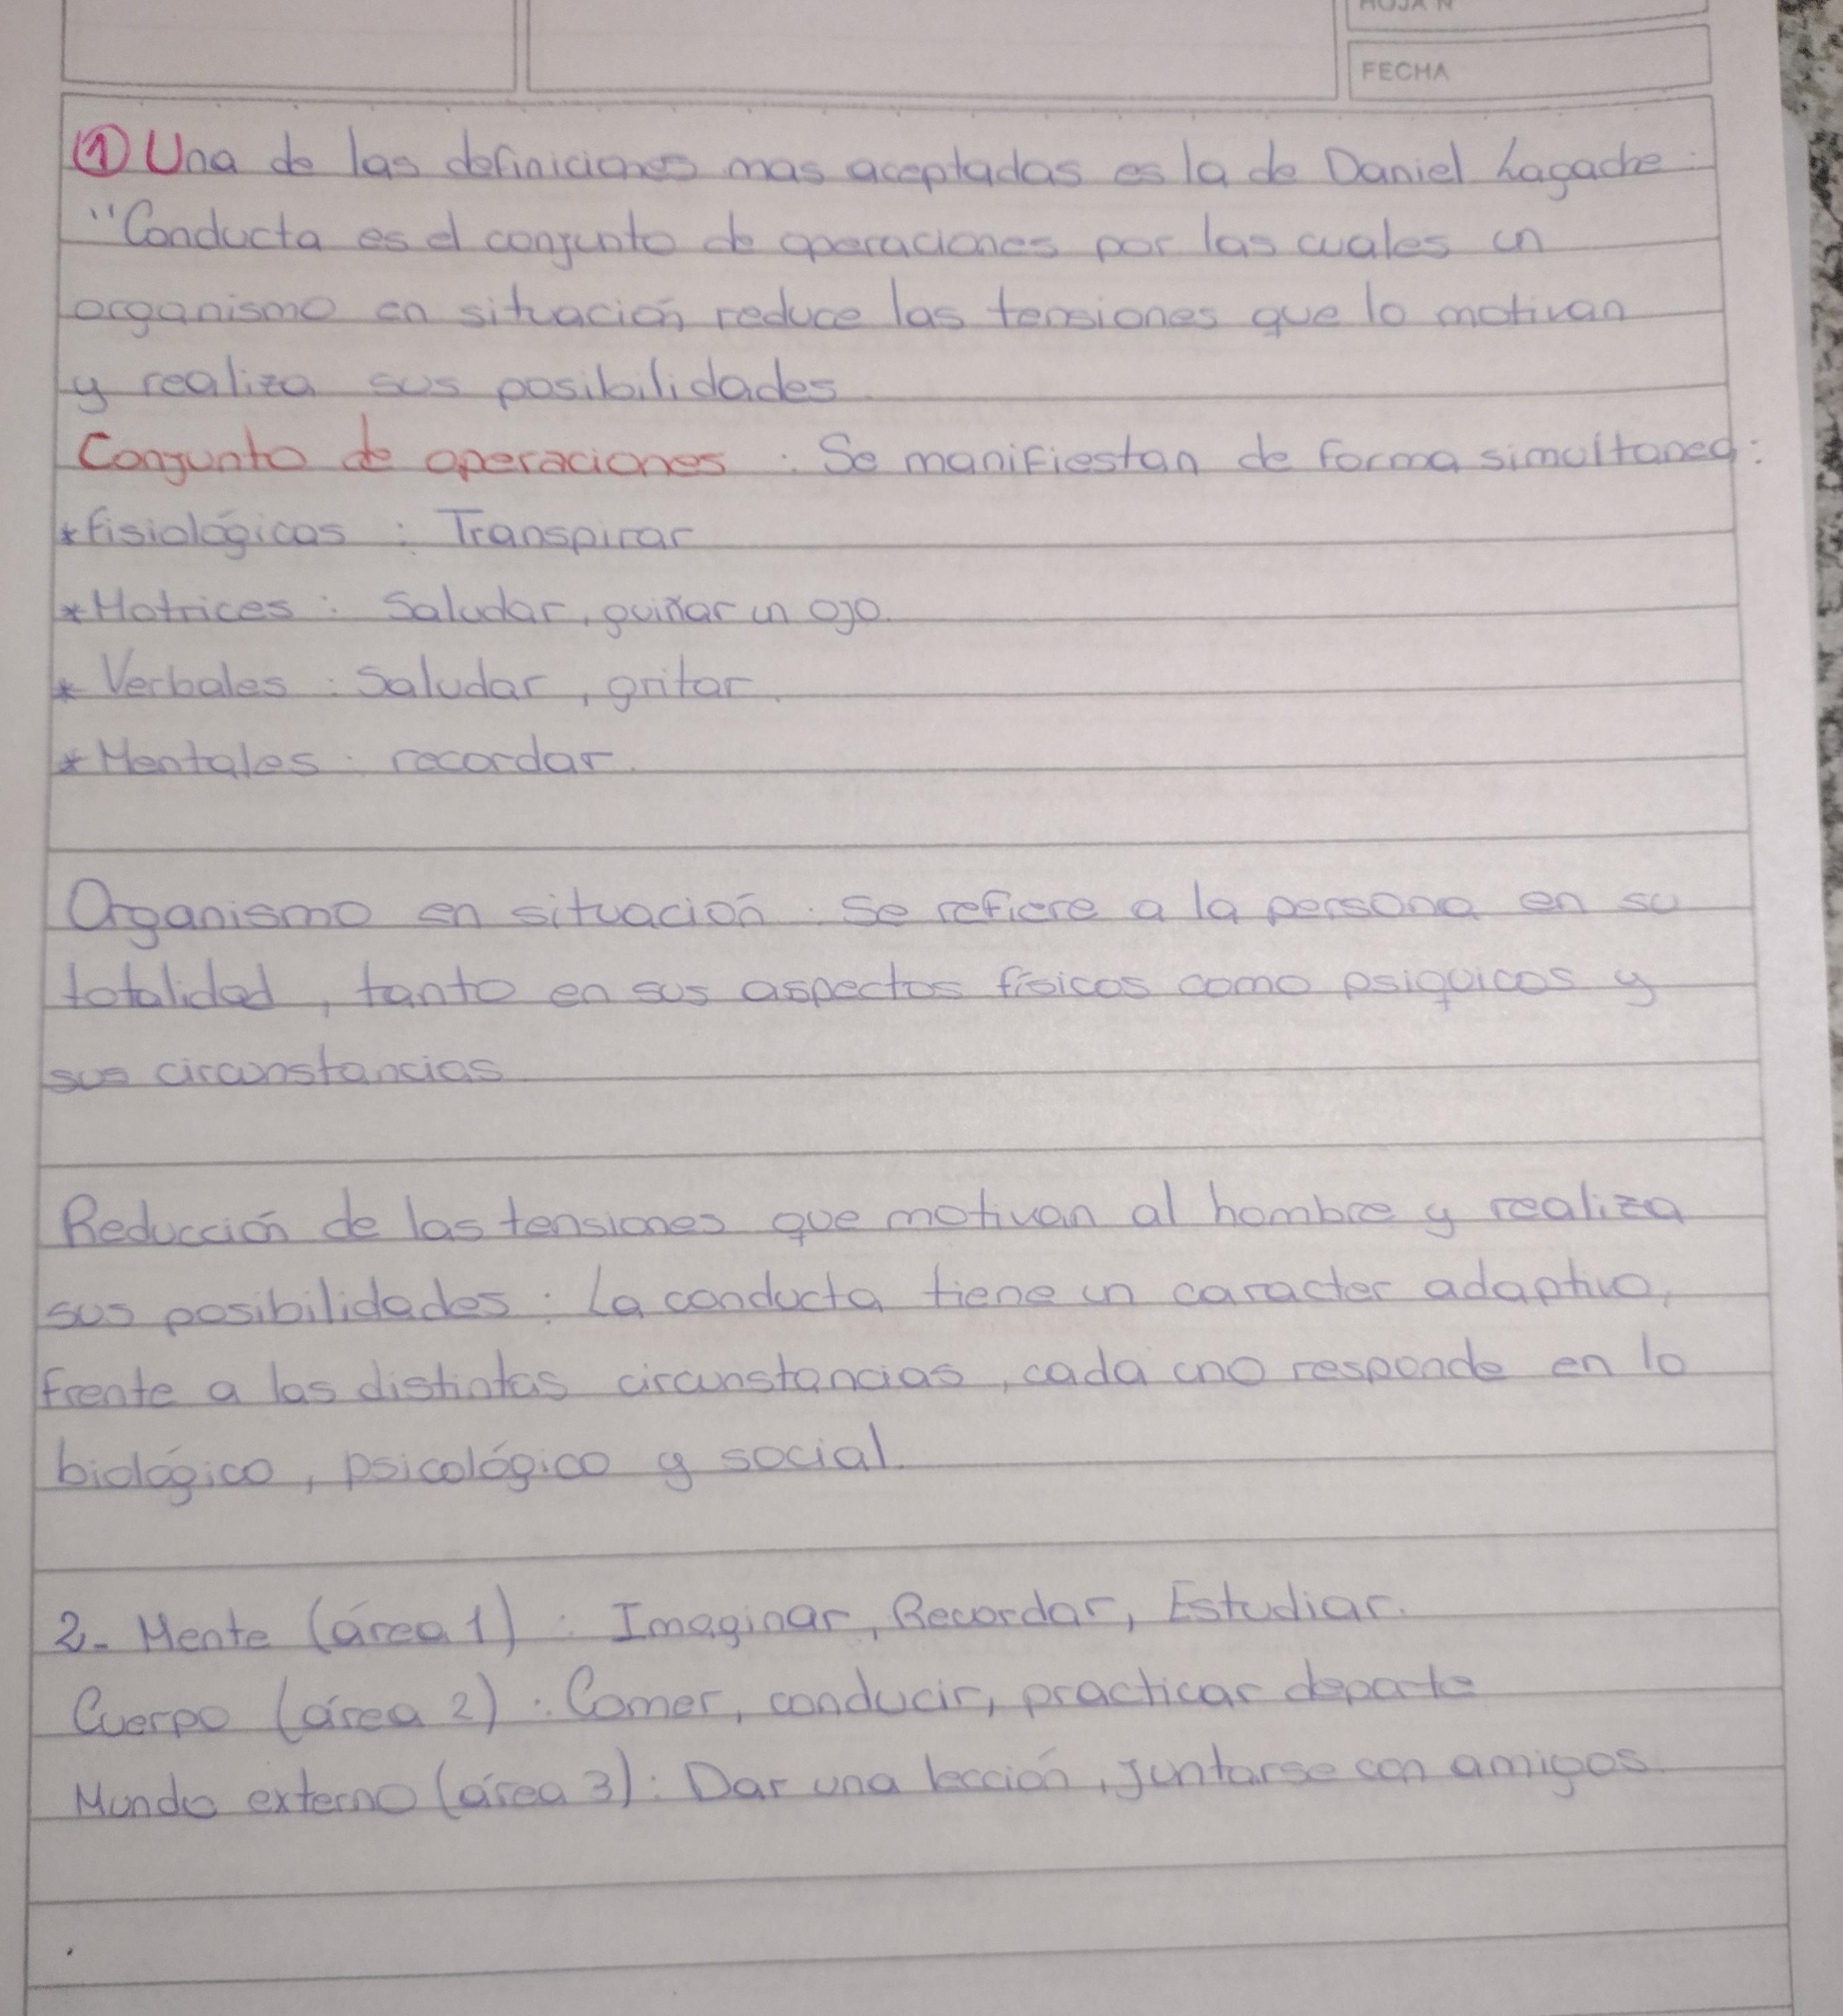 HOJA N
FECHA
① Una de las definiciones mas aceptadas es la de Daniel Lagache:
"Conducta es el conjunto de operaciones por las cuales un
organismo en situación reduce las tensiones que lo motivan
y realiza sus posibilidades
Conjunto de operaciones : Se manifiestan de forma simultanea:
* Fisiológicas : Transpirar
* Motrices : Saludar, guiñar un ojo.
* Verbales : Saludar, gritar.
* Mentales : recordar.
Organismo en situación : Se refiere a la persona en su
totalidad, tanto en sus aspectos físicos como psiquicos y
sus circunstancias
Reducción de las tensiones que motivan al hombre y realiza
sus posibilidades : La conducta tiene un caracter adaptivo,
frente a las distintas circunstancias, cada uno responde en lo
biológico, psicológico y social.
2- Mente (área 1) : Imaginar, Recordar, Estudiar.
Cuerpo (área 2) : Comer, conducir, practicar deporte
Mundo externo (área 3) : Dar una lección, juntarse con amigos.